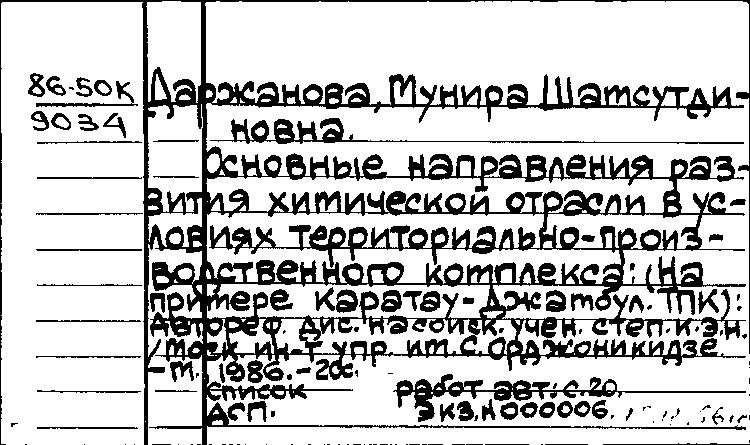 86-50К Даржанова, Мунира Шатсутди-
9034 новна.
Основные направления раз-
вития химической отрасли в ус-
ловиях территориально-произ-
водственного комплекса: (На
примере Каратау-Джамбул. ТПК):
Автореф. дис. на соиск. учен. степ. к.э.н.
/Моск. ин-т упр. им. С. Орджоникидзе.
-М., 1986.-20с.
Список работ авт.: с.20.
ДСП. Экз.N000006.